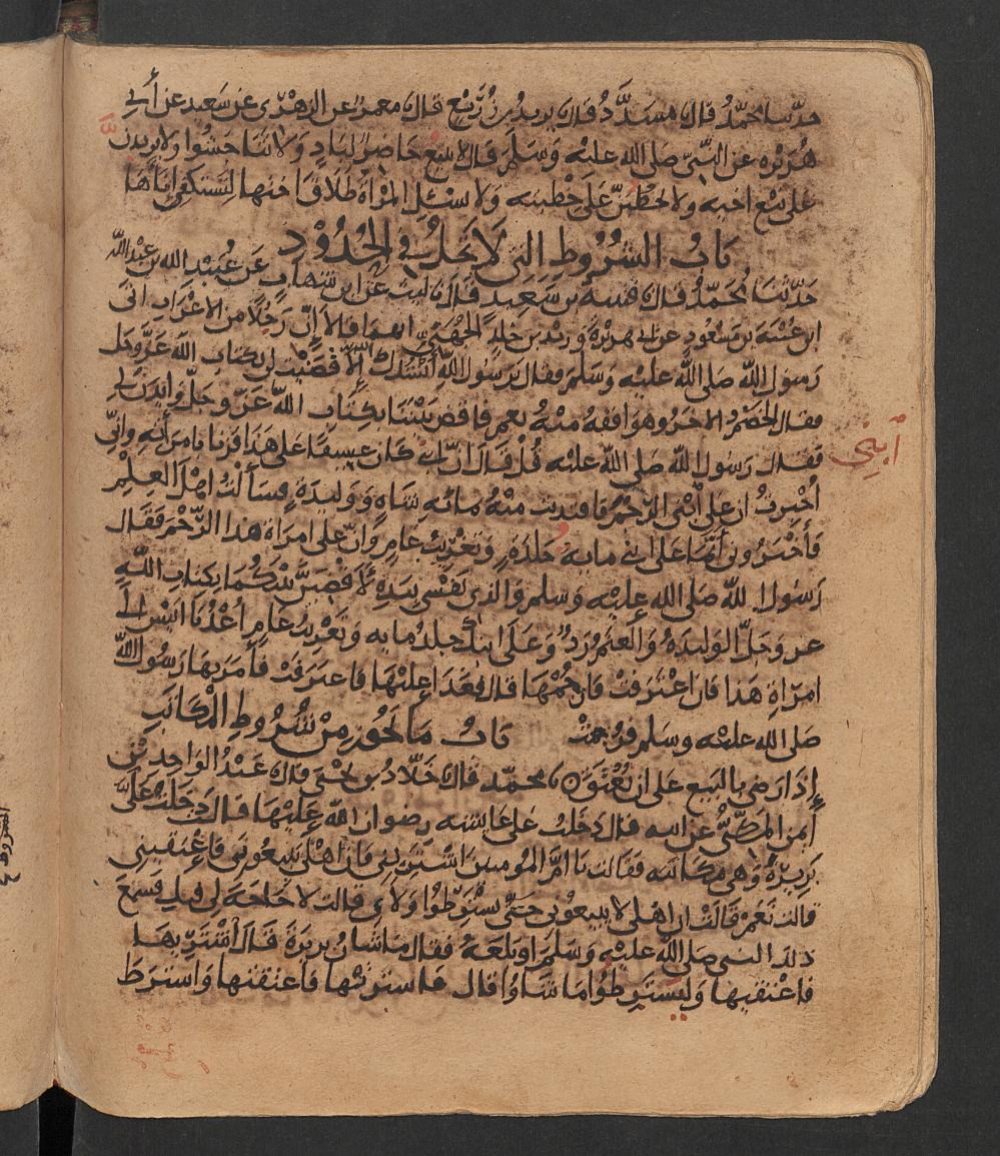 حدثنا محمد قال نا مسدد قال نا يزيد بن زريع قال نا معمر عن الزهري عن سعيد عن أبي
هريره عن النبي صلى الله عليه وسلم قال لا يبيع حاضر لباد ولا تناجشوا ولا يزيدن
على بيع اخيه ولا يخطبن على خطبته ولا تسئل المرأة طلاق اختها لتستكفئ إناءها
باب الشروط التي لا تحل في الحدود
حدثنا محمد قال نا قتيبة بن سعيد قال نا ليث عن ابن شهاب عن عبيد الله بن عبد الله
ابن عتبة بن مسعود عن ابي هريرة وزيد بن خلد الجهني انهما قالا إن رجلا من الاعراب اتى
رسول الله صلى الله عليه وسلم فقال يرسول الله أنشدك الله إلا قضيت لي بكتاب الله عز وجل
فقال الخصم الاخر وهو افقه منه نعم فاقض بيننا بكتاب الله عز وجل وايذن لي
فقال رسول الله صلى الله عليه قل قال ان ابني كان عسيفا على هذا فزنا بامرأته وإني
ابني
أخبرت ان على ابني الرجم فافتديت منه بمائه شاه ووليدة فسألت اهل العلم
فأخبروني أنما على ابني مايه جلدة وتغريب عام وأن على امراة هذا الرجم فقال
رسول الله صلى الله عليه وسلم والذي نفسي بيده لأقضين بينكما بكتاب الله
عز وجل الوليدة والغنم رد وعلى ابنك جلد مايه وتغريب عام أغد يا انيس الى
امرأة هذا فان اعترفت فارجمها قال فغدا عليها فاعترفت فأمر بها رسول الله
صلى الله عليه وسلم فرجمت باب ما يجوز من شروط المكاتب
إذا رضي بالبيع على ان يعتق نا محمد قال نا خلاد بن يحيى قال نا عبد الواحد بن
أيمن المكي عن ابيه قال دخلت على عايشه رضوان الله عليها قالت دخلت علي
بريرة وهي مكاتبه فقالت يا أم المومنين اشتريني فان أهلي يبيعوني فأعتقيني
قالت نعم قالت ان اهلي لا يبيعوني حتى يشترطوا ولاي قالت لا حاجة لي فيك فسمع
ذلك النبي صلى الله عليه وسلم او بلغه فقال ما شان بريرة قال اشتريها
فاعتقيها وليشترطوا ما شاوا قال فاشتريتها فاعتقتها واشترط